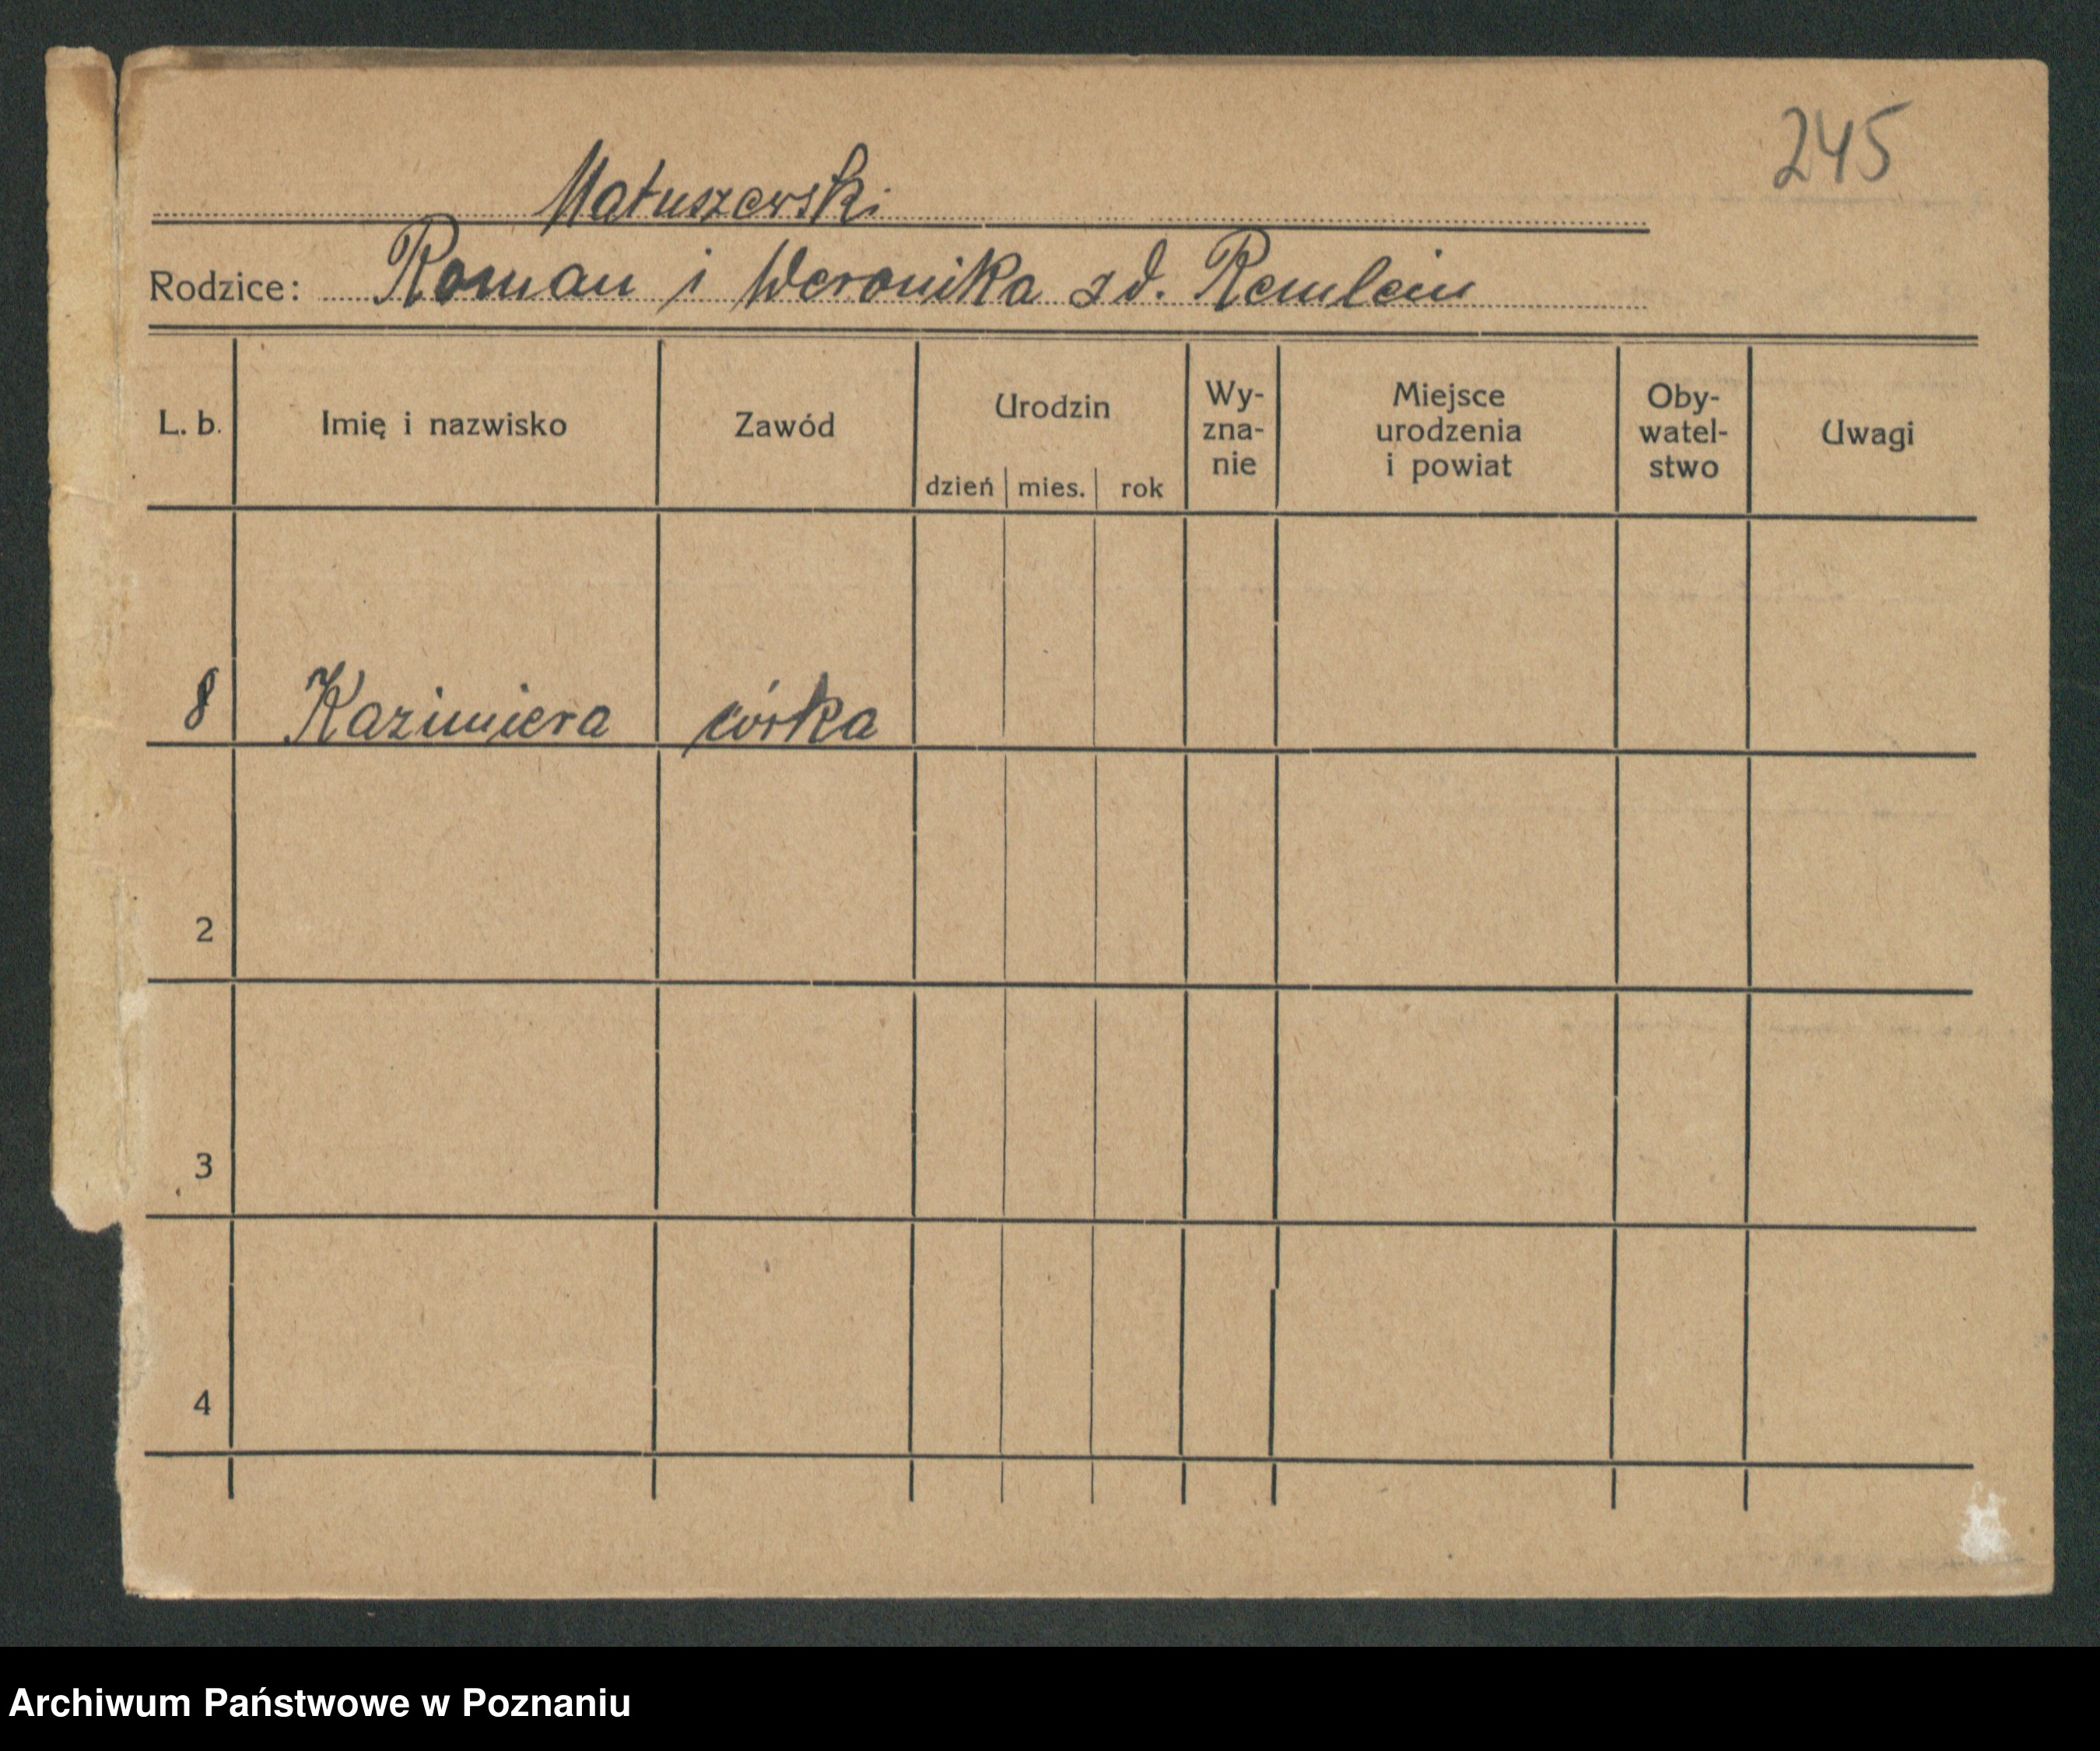 245
Matuszewski
Rodzice: Roman i Weronika zd. Remlein
L. b. Imię i nazwisko Zawód Urodzin dzień mies. rok Wy-zna-nie Miejsce urodzenia i powiat Oby-watel-stwo Uwagi
8 Kazimiera córka
2
3
4
Archiwum Państwowe w Poznaniu